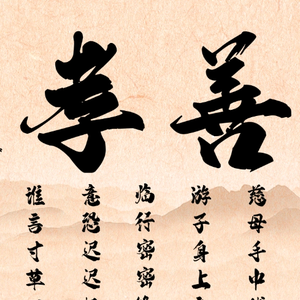 善孝
慈母手中
游子身上
临行密密
意恐迟迟
谁言寸草